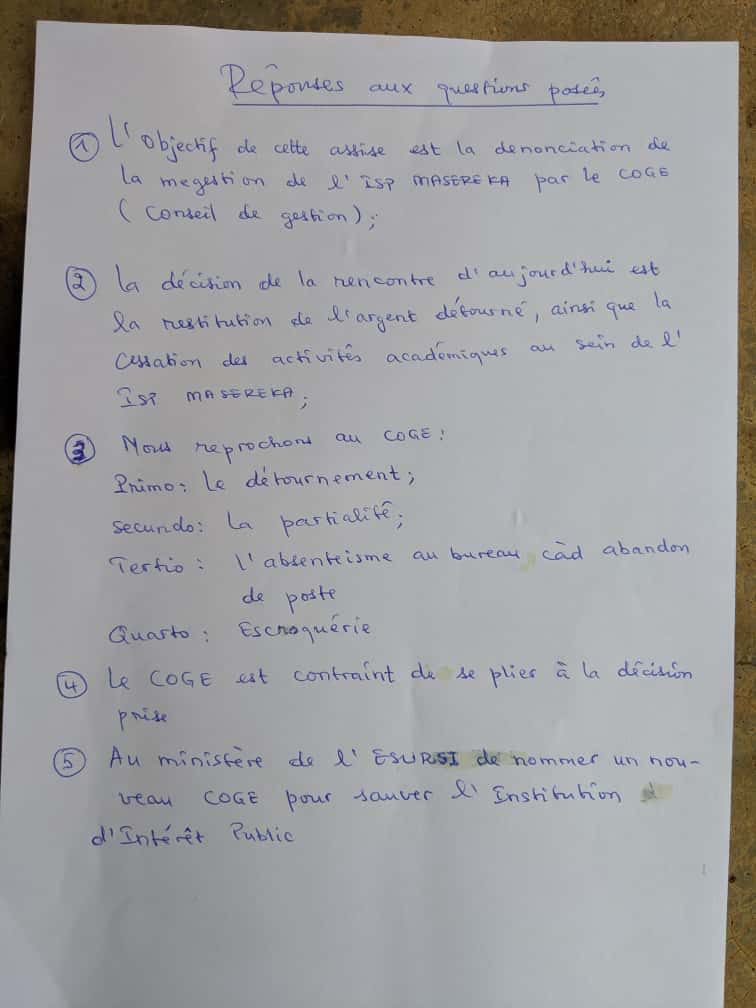 Réponses aux questions posées
① L'Objectif de cette assise est la denonciation de
la megestion de l'ISP MASEREKA par le COGE
(Conseil de gestion);
② La décision de la rencontre d'aujourd'hui est
la restitution de l'argent détourné, ainsi que la
Cessation des activités académiques au sein de l'
ISP MASEREKA;
③ Nous reprochons au COGE:
Primo: Le détournement;
Secundo: La partialité;
Tertio: l'absenteisme au bureau càd abandon
de poste
Quarto: Escroquérie
④ Le COGE est contraint de se plier à la décision
prise
⑤ Au ministère de l'ESURSI de nommer un nou-
veau COGE pour sauver l'Institution d
d'Intérêt Public